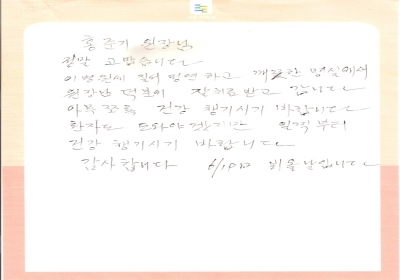 홍준기 원장님
정말 고맙습니다
이병원에 입원하고 깨끗한 병실에서
원장님 덕분에 잘치료받고 갑니다
아무쪼록 건강 챙기시기 바랍니다
환자도 도와야겠지만 일찍부터
건강 챙기시기 바랍니다
감사합니다